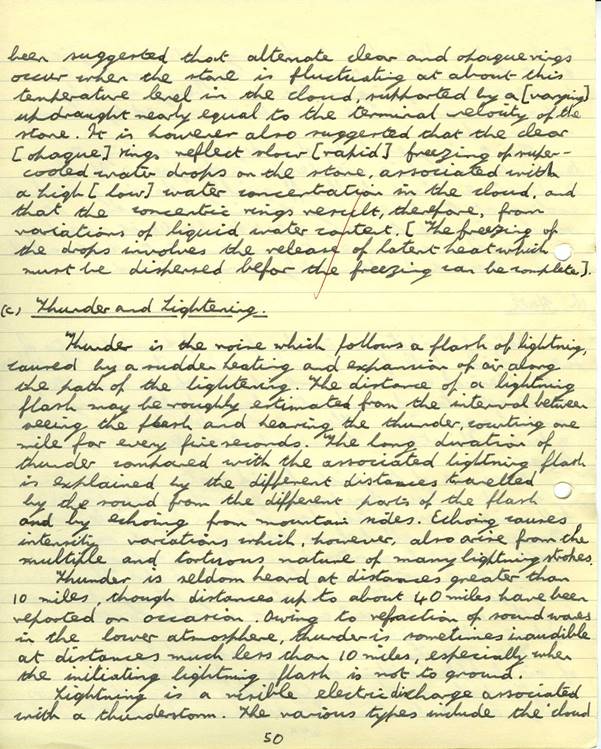 been suggested that alternate clear and opaque rings
occur when the stone is fluctuating at about this
temperature level in the cloud, supported by a [varying]
updraught nearly equal to the terminal velocity of the
stone. It is however also suggested that the clear
[opaque] rings reflect slow [rapid] freezing of super-
cooled water drops on the stone, associated with
a high [low] water concentration in the cloud, and
that the concentric rings result, therefore, from
variations of liquid water content. [The freezing of
the drops involves the release of latent heat which
must be dispersed befor the freezing can be complete].
(c) Thunder and Lightening.
Thunder is the noise which follows a flash of lightning,
caused by a sudden heating and expansion of air along
the path of the lightening. The distance of a lightning
flash may be roughly estimated from the interval between
seeing the flash and hearing the thunder, counting one
mile for every five seconds. The long duration of
thunder compared with the associated lightning flash
is explained by the different distances travelled
by the sound from the different parts of the flash
and by echoing from mountain sides. Echoing causes
intensity variations which, however, also arise from the
multiple and tortuous nature of many lightning strokes.
Thunder is seldom heard at distances greater than
10 miles, though distances up to about 40 miles have been
reported on occasion. Owing to refraction of sound waves
in the lower atmosphere, thunder is sometimes inaudible
at distances much less than 10 miles, especially when
the initiating lightning flash is not to ground.
Lightning is a visible electric discharge associated
with a thunderstorm. The various types include the 'cloud
50